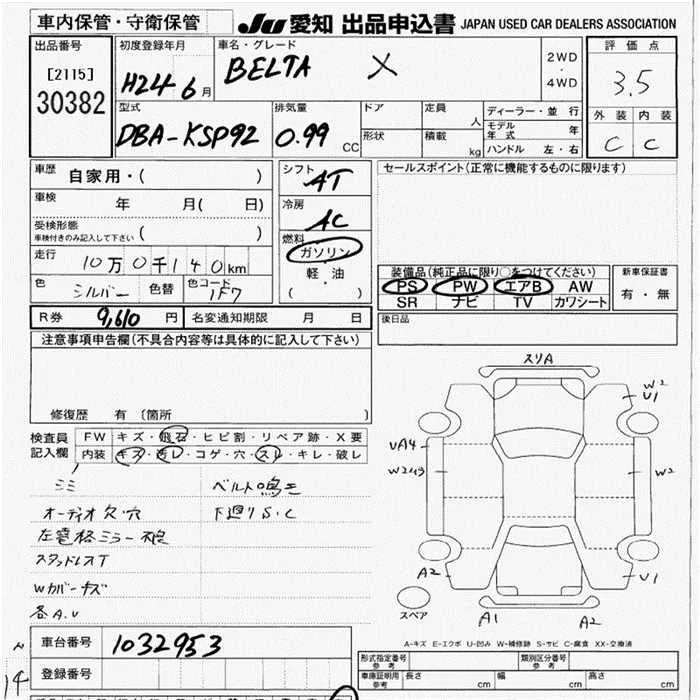 車内保管・守衛保管
JU 愛知 出品申込書 JAPAN USED CAR DEALERS ASSOCIATION
出品番号
[2115]
30382
初度登録年月
H24 6 月
車名・グレード
BELTA X
2WD
・
4WD
評価点
3.5
型式
DBA-KSP92
排気量
0.99 CC
ドア
形状
定員 人
積載 kg
ディーラー・並行
モデル年式 年
ハンドル 左・右
外装 内装
C C
車歴 自家用・( )
車検 年 月( 日)
受検形態
車検付きのみ記入して下さい ( )
走行 10万0千140km
色 シルバー 色替 色コード 1F7
シフト
AT
冷房
AC
燃料
ガソリン
軽・油
( ・ )
セールスポイント(正常に機能するものに限ります)
装備品(純正品に限り○をつけてください)
PS PW エアB AW
SR ナビ TV カワシート
新車保証書
有・無
R券 9,610 円 名変通知期限 月 日
後日品
注意事項申告欄(不具合内容等は具体的に記入して下さい)
修復歴 有 〔箇所 〕
検査員
記入欄
FW キズ・飛石・ヒビ割・リペア跡・X要
内装 キズ・汚レ・コゲ・穴・スレ・キレ・破レ
ミミ
ベルト鳴き
オーディオ欠・穴
下廻りS・C
スタッドレスT
Wカバーキズ
各A.U
スリA
W2
U1
UA4
W2
W2
A2
U1
スペア
A1
A2
A-キズ E-エクボ U-凹み W-補修跡 S-サビ C-腐食 XX-交換済
車台番号 1032953
登録番号
形式指定番号
参考
類別区分番号
参考
車庫証明用
参考
長さ cm 幅 cm 高さ cm
14